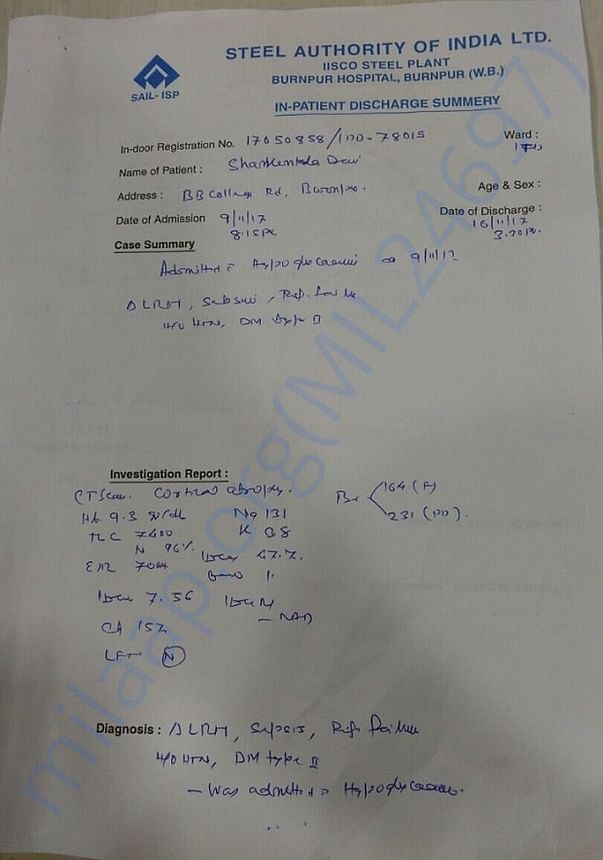 STEEL AUTHORITY OF INDIA LTD.
IISCO STEEL PLANT
BURNPUR HOSPITAL, BURNPUR (W.B.)
SAIL-ISP
IN-PATIENT DISCHARGE SUMMERY
In-door Registration No. 17050858/IPD-78015
Ward :
Name of Patient : Devi
Address : BB College Rd, Burnpur.
Age & Sex :
Date of Admission 9/11/17
8.15PM
Date of Discharge :
16/11/17
3.30PM.
Case Summary
Admitted c̄ Hypoglycaemia on 9/11/17
LRTI, Sepsis, Resp. Failure
H/O HTN, DM type II
Investigation Report :
CT Scan. Cortical atrophy.
Hb 9.3 gm/dl Na 131
TLC 7400 K 3.8
N 96%
ESR
Urea 47.7.
164 (F)
231 (PP).
7.56
NAD
LFT N
Diagnosis : LRTI, Sepsis, Resp. Failure
H/O HTN, DM type II
- Was admitted c̄ Hypoglycaemia.
milaap.org(MIL24697)